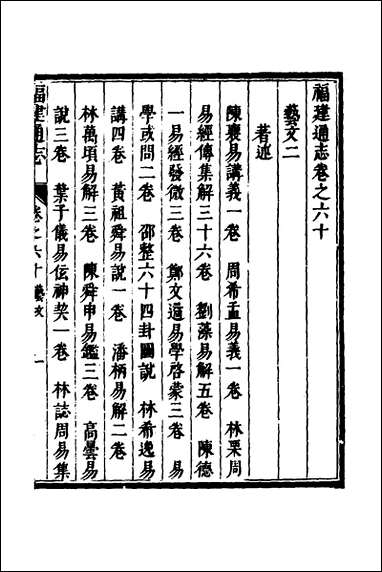 福建通志卷之六十
藝文二
著述
陳襄易講義一卷 周希孟易義一卷 林栗周
易經傳集解三十六卷 劉藻易解五卷 陳德
一易經發微三卷 鄭文遹易學啓蒙三卷 易
學或問二卷 邵整六十四卦圖說 林希逸易
講四卷 黃祖舜易說一卷 潘柄易解二卷
林萬頃易解三卷 陳舜申易鑑三卷 高曇易
說三卷 葉子儀易伝神契一卷 林誌周易集
福建通志 卷之六十 藝文 一